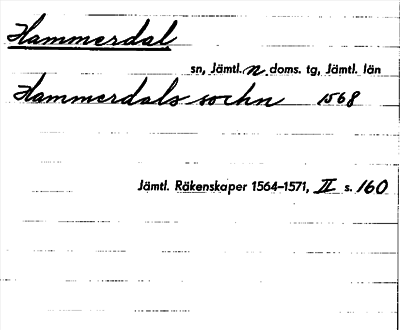 Hammerdal
sn, Jämtl. n. doms. tg, Jämtl. län
Hammerdals sochn 1568
Jämtl. Räkenskaper 1564–1571, II s. 160